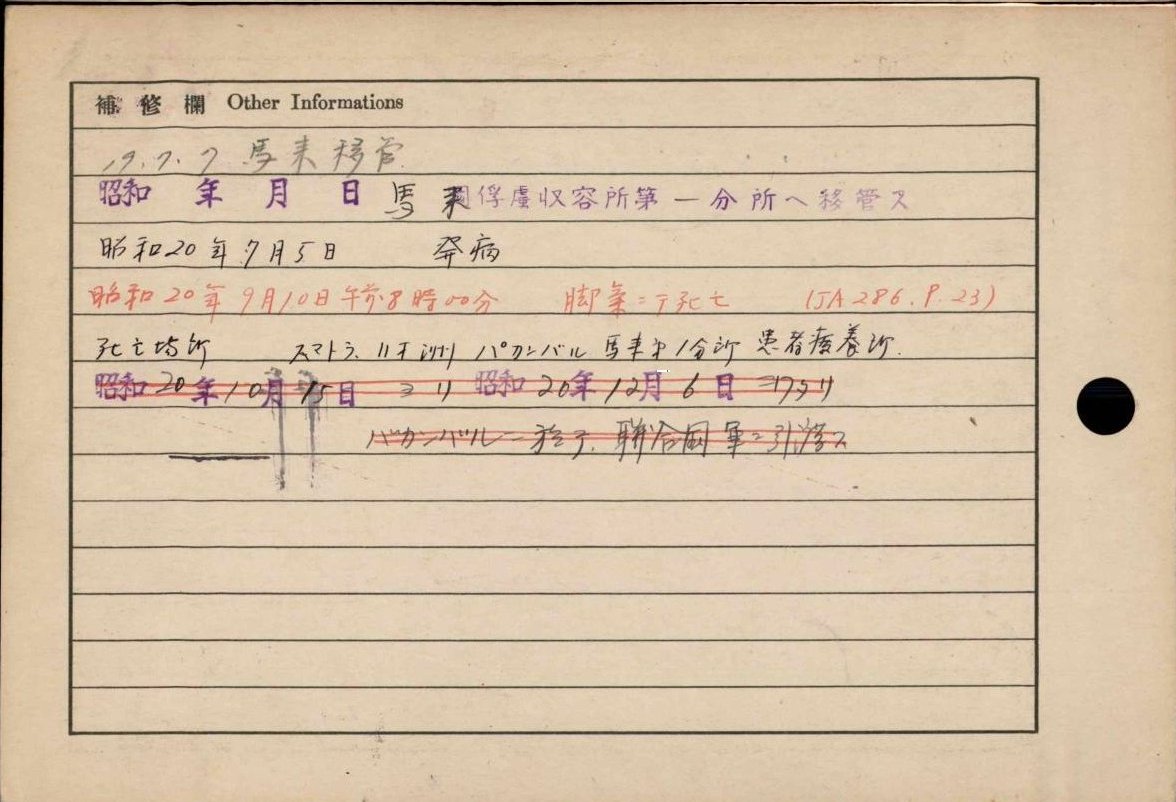 補修欄 Other Informations
19.7.7 馬来移管
昭和 年 月 日 馬来俘虜収容所第一分所ヘ移管ス
昭和20年7月5日 発病
昭和20年9月10日午前8時00分 脚気ニテ死亡 (JA 286. P. 23)
死亡場所 スマトラ、リオ洲 パカンバル 馬来第1分所 患者療養所
昭和20年10月15日ヨリ 昭和20年12月6日ニワタリ
パカンバルニ於テ、聯合国軍ニ引渡ス